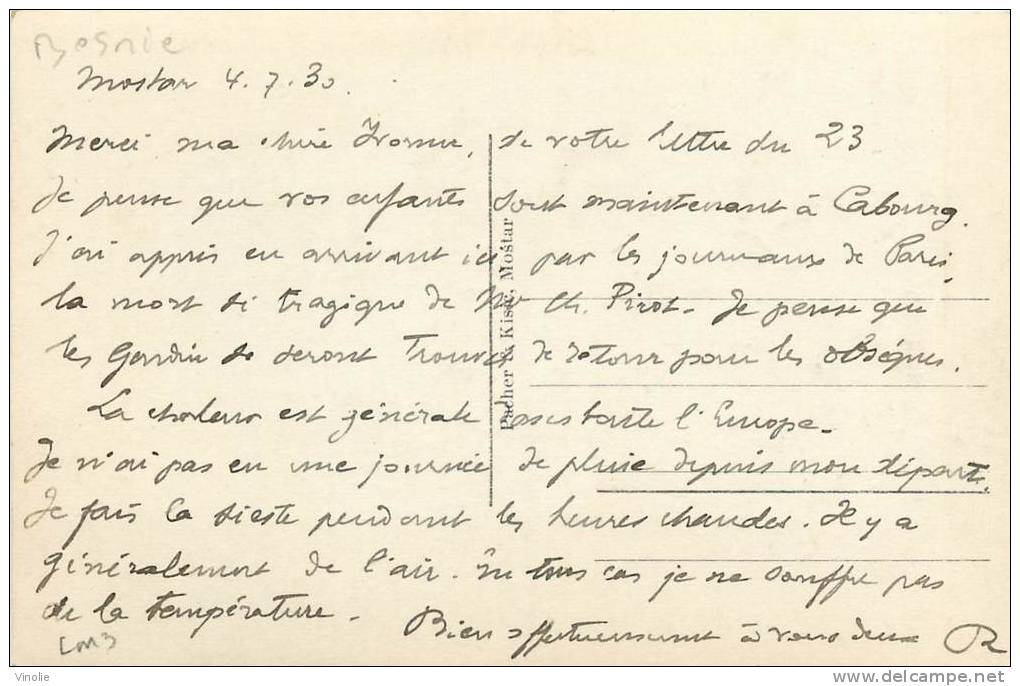 Bosnie
Mostar 4.7.30.
Merci ma chère Yvonne, de votre lettre du 23
Je pense que vos enfants sont maintenant à Cabourg.
J'ai appris en arrivant ici par les journaux de Paris,
la mort si tragique de Mr Ch. Pirot. Je pense que
les se seront trouvés de retour pour les obsèques.
La chaleur est générale dans toute l'Europe.
Je n'ai pas eu une journée de pluie depuis mon départ.
Je fais la sieste pendant les heures chaudes. Il y a
généralement de l'air. En tous cas je ne souffre pas
de la température.
Bien affectueusement à vous deux R
LM3
Pacher & Kisić, Mostar
Vinolie
delcampe.net